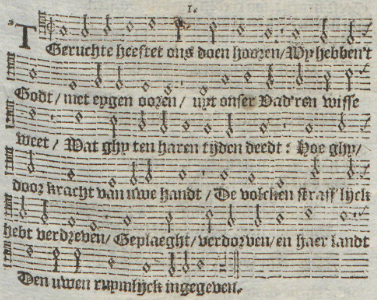 1.
T Geruchte heeftet ons doen hooren/Wy hebben't
Godt/ met eygen ooren/ uyt onser Vad'ren wisse
weet/ Wat ghy ten haren tijden deedt: Hoe ghy/
door kracht van uwe handt/ De volcken straff'lijck
hebt verdreven/ Geplaeght/verdorven/en haer landt
Den uwen ruymlijck ingegeven.